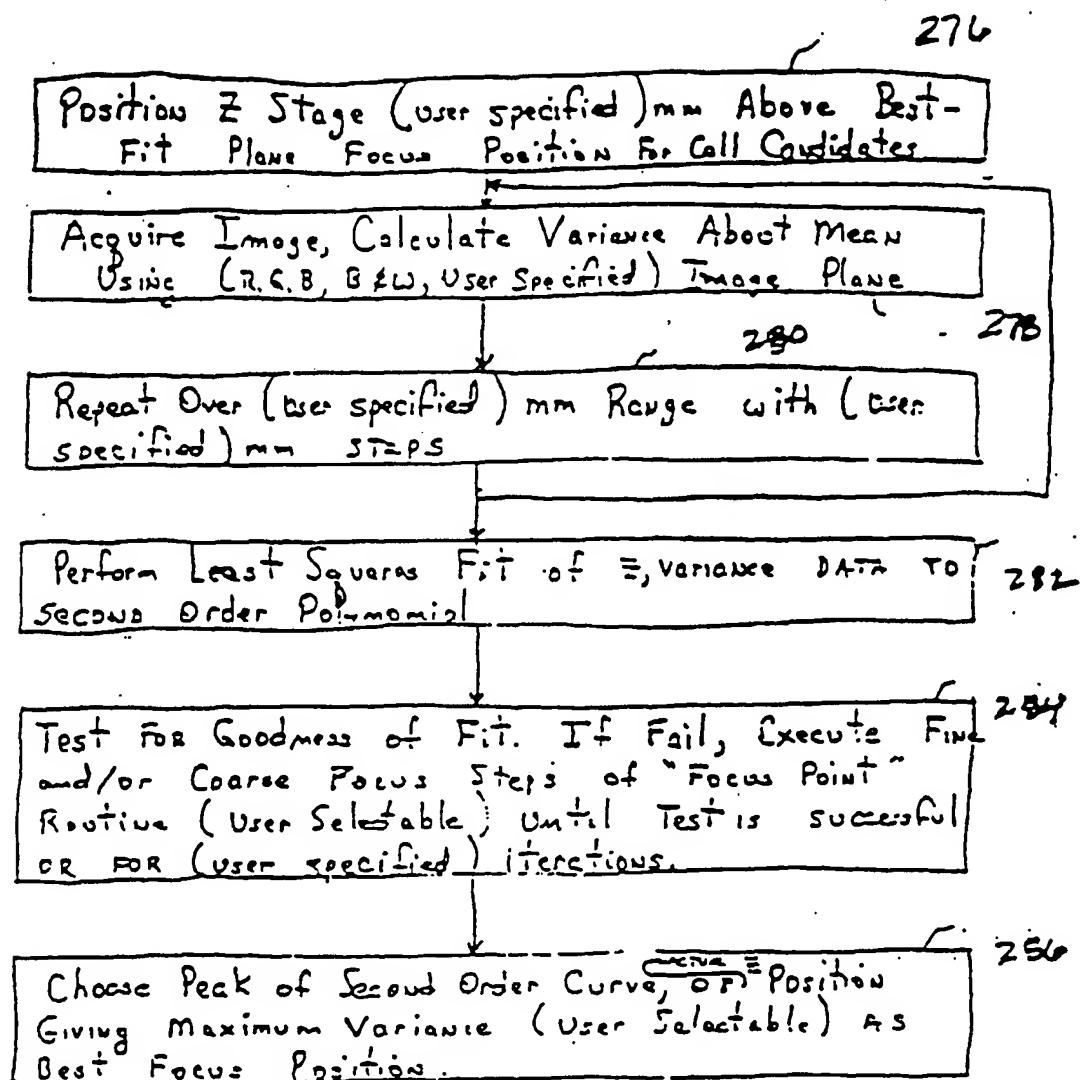 276
Position Z Stage (user specified) mm Above Best-
Fit Plane Focus Position For Cell Candidates
Acquire Image, Calculate Variance About Mean
Using (R.G.B, B&W, User Specified) Image Plane
278
280
Repeat Over (user specified) mm Range with (user
specified) mm STEPS
Perform Least Squares Fit of Z, variance DATA TO
Second Order Polynomial
282
284
Test For Goodness of Fit. If Fail, Execute Fine
and/or Coarse Focus Steps of "Focus Point"
Routine (User Selectable) Until Test is successful
OR FOR (user specified) iterations.
256
Choose Peak of Second Order Curve, OR Z Position
Giving Maximum Variance (User Selectable) As
Best Focus Position.